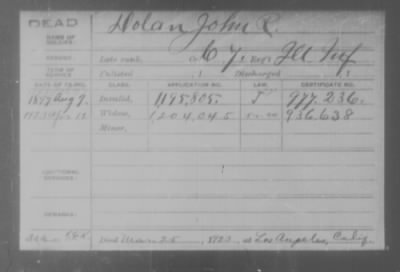 DEAD
Dolan John R.
NAME OF SOLDIER:
SERVICE:
Late rank, Co. 67, Reg't Ill Inf
TERM OF SERVICE:
Enlisted , 1 Discharged , 1
DATE OF FILING. CLASS. APPLICATION NO. LAW. CERTIFICATE NO.
1897 Aug 9. Invalid, 1195,805. 977.236.
Widow, 1204045 936.638
Minor,
ADDITIONAL SERVICES:
REMARKS:
Died 25, 1923 at Los Angeles, Calif.